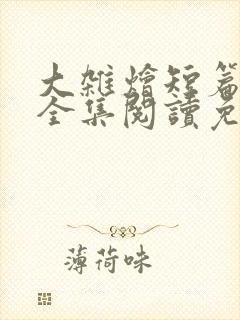 大雜燴短篇
全集閱讀免
薄荷味